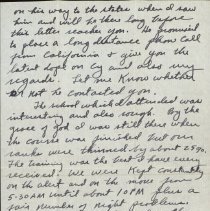 on his way to the states when I saw
him and will be there long before
this letter reaches you. He promised
to place a long distance phone call
from California & give you the
latest dope on Cy and also my
regards. Let me know whether
or not he contacted you.
The school which I attended was
interesting and also rough. By the
grace of God I was still there when
the course was finished but our
ranks were thinned by about 25%.
The training was the best I have ever
received. We were kept constantly
on the alert and on the move from
5:30 AM until about 10 PM plus a
fair number of night problems.